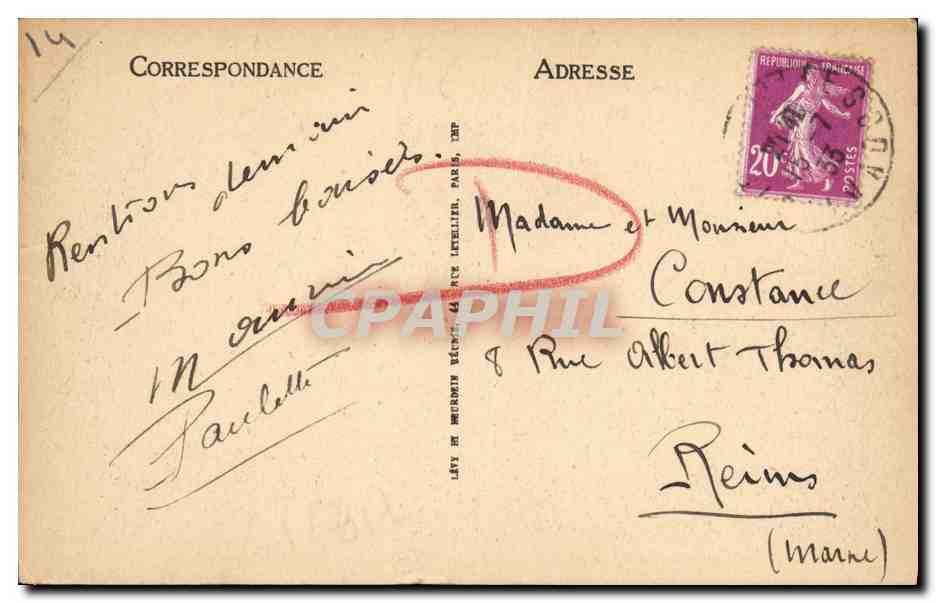 14
CORRESPONDANCE
Rentrons demain
Bons baisers.
Maurice
Paulette
LÉVY ET NEURDEIN RÉUNIS, 44, RUE LETELLIER, PARIS, IMP
ADRESSE
REPUBLIQUE FRANÇAISE
20
POSTES
Madame et Monsieur
Constance
8 Rue Albert Thomas
Reims
(Marne)
CPAPHIL